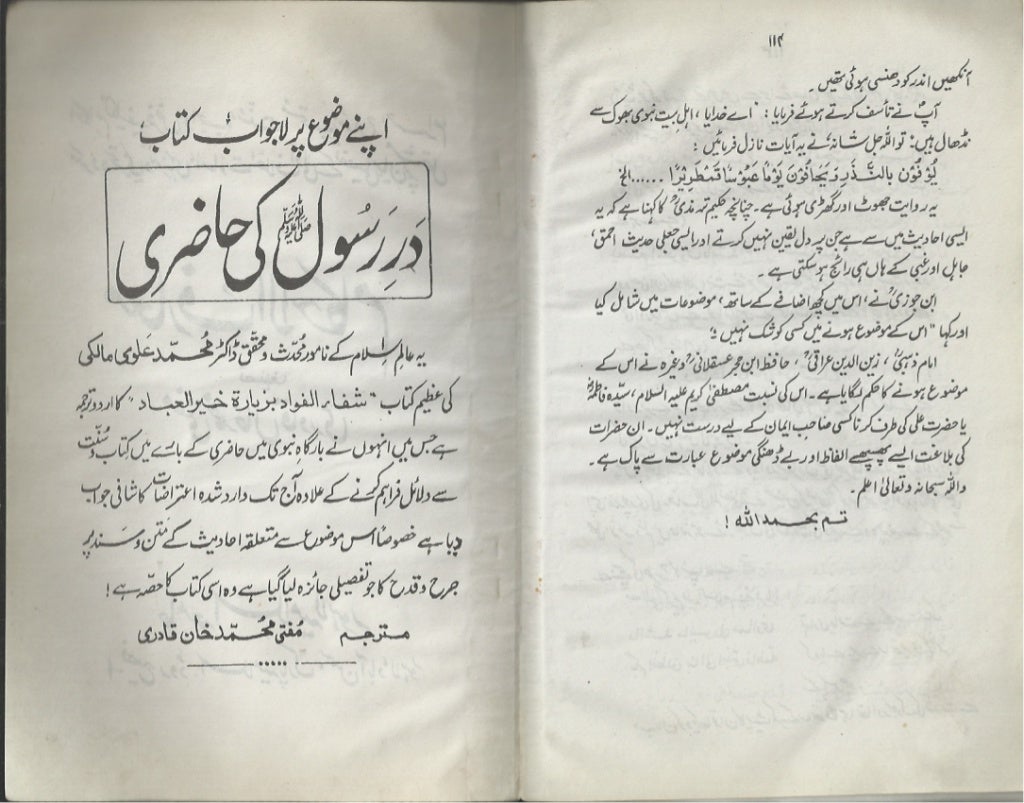 ۱۱۴
آنکھیں اندر کو دھنسی ہوئی تھیں۔
آپؐ نے تأسف کرتے ہوئے فرمایا: "اے خدایا، اہل بیت نبوی بھوک سے
نڈھال ہیں: تو اللہ جل شانہٗ نے یہ آیات نازل فرمائیں:
يُوْفُوْنَ بِالنَّذْرِ وَيَخَافُوْنَ يَوْمًا عَبُوْسًا قَمْطَرِيْرًا ...... الخ
یہ روایت جھوٹ اور گھڑی ہوئی ہے۔ چنانچہ حکیم ترمذیؒ کا کہنا ہے کہ یہ
ایسی احادیث میں سے ہے جن پر دل یقین نہیں کرتے اور ایسی جعلی حدیث احمق،
جاہل اور غبی کے ہاں ہی رائج ہو سکتی ہے۔
ابن جوزیؒ نے، اس میں کچھ اضافے کے ساتھ، موضوعات میں شامل کیا
اور کہا "اس کے موضوع ہونے میں کسی کو شک نہیں"؛
امام ذہبیؒ، زین الدین عراقیؒ، حافظ ابن حجر عسقلانیؒ وغیرہ نے اس کے
موضوع ہونے کا حکم لگایا ہے۔ اس کی نسبت مصطفیٰ کریم علیہ السلام، سیّدہ فاطمہؓ
یا حضرت علی کی طرف کرنا کسی صاحب ایمان کے لیے درست نہیں۔ ان حضرات
کی بلاغت ایسے پھسپھسے الفاظ اور بے ڈھنگی موضوع عبارت سے پاک ہے۔
واللہ سبحانہ وتعالیٰ اعلم۔
تم بحمد اللہ!
اپنے موضوع پر لاجواب کتاب
دَرِ رَسُول ﷺ کی حاضری
یہ عالمِ اسلام کے نامور محُدّث و محقق ڈاکٹر محُمّد عَلوی مالکی
کی عظیم کتاب "شفاء الفواد بزیارۃ خیر العباد" کا اردو ترجمہ
ہے جس میں انہوں نے بارگاہِ نبوی میں حاضری کے بارے میں کتاب و سُنّت
سے دلائل فراہم کرنے کے علاوہ آج تک وارد شدہ اعتراضات کا شافی جواب
دیا ہے خصوصاً اس موضوع سے متعلقہ احادیث کے مَتن و سَند پر
جرح و قدح کا جو تفصیلی جائزہ لیا گیا ہے وہ اسی کتاب کا حصّہ ہے!
مترجم مُفتی محُمّد خان قادری